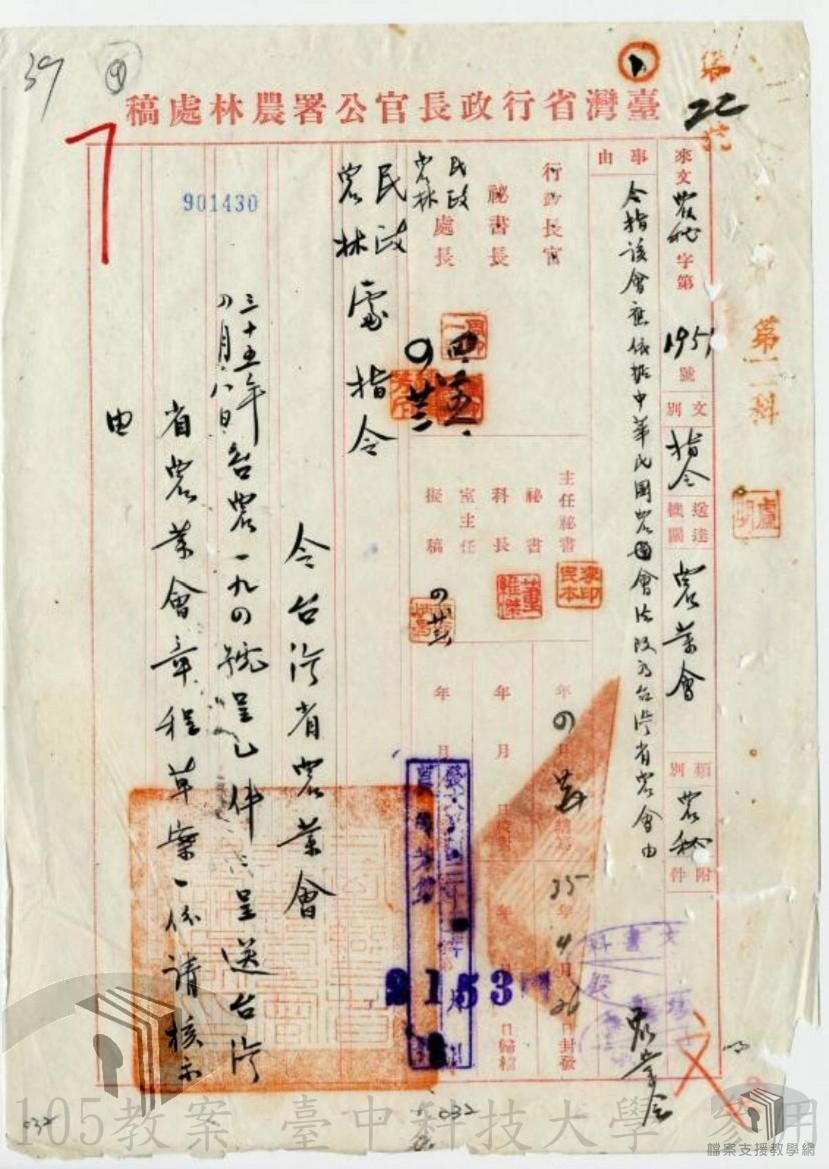 39
9
臺灣省行政長官公署農林處稿
22
來文農秘字第1951號
文別
指令
送達機關
農業會
類別
農秘
附件
第二科
事由
令指該會應依據中華民國農會法改為台灣省農會由
行政長官
秘書長
民政
農林
處長
主任秘書
秘書
科長
室主任
擬稿
李印民本
35年4月26日封發
日歸檔
2153
民政
農林
處指令
令台灣省農業會
三十五年四月八日台農一九四號呈乙件：呈送台灣
省農業會章程草案一份請核示
由
901430
032
032
105教案 臺中科技大學
檔案支援教學網